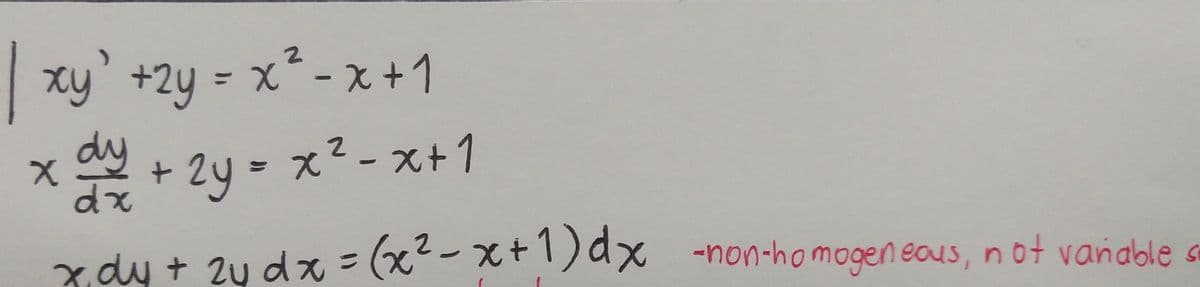 xy' +2y = x² - x +1
x dy/dx + 2y = x² - x+1
x dy + 2y dx = (x² - x+1)dx -non-homogeneous, not variable